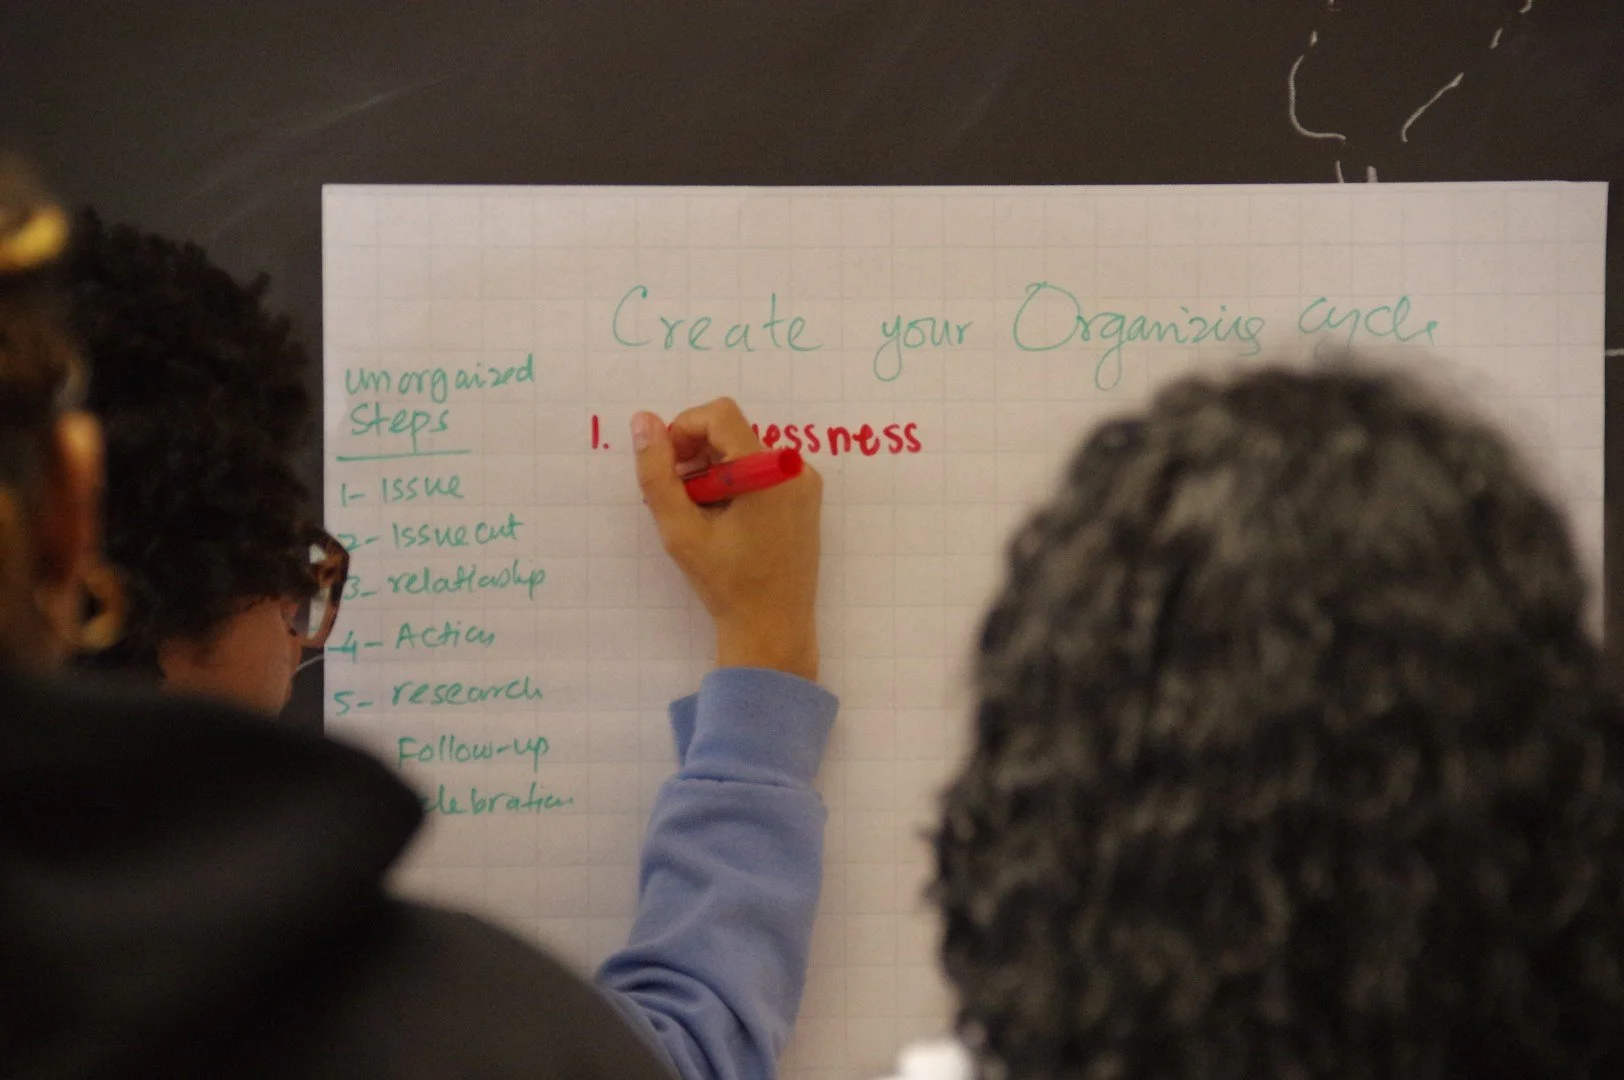 Create your Organizing cycle
unorgaized
Steps
1- Issue
2- Issue cut
3- relatiaship
4- Action
5- research
Follow-up
1.